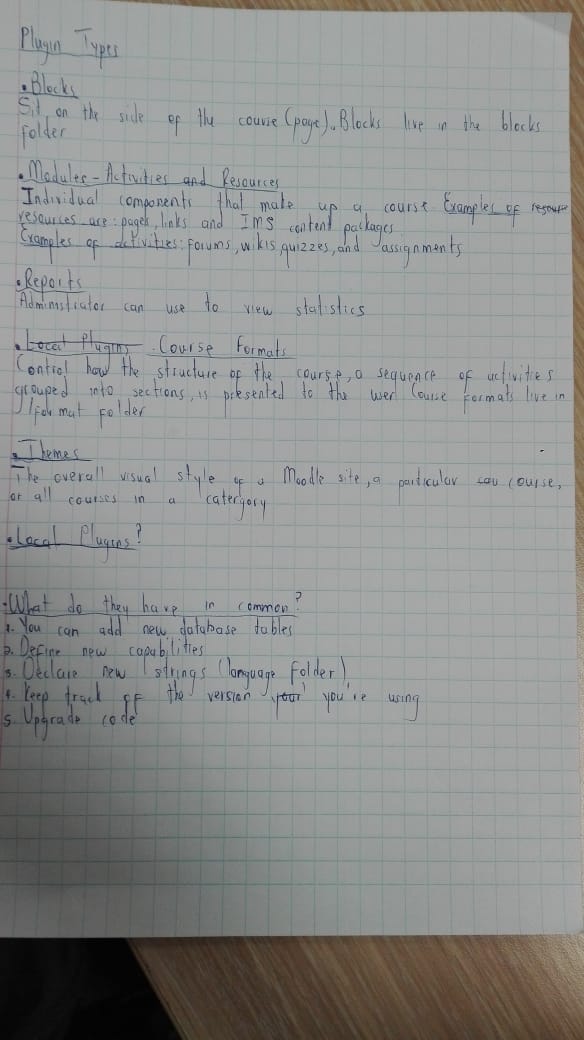 Plugin Types
• Blocks
Sit on the side of the course (page). Blocks live in the blocks
folder
• Modules - Activities and Resources
Individual components that make up a course Examples of resource
resources are: pages, links and IMS content packages
Examples of activities: forums, wikis, quizzes, and assignments
• Reports
Administrator can use to view statistics
• Local Plugins . Course Formats
Control how the structure of the course, a sequence of activities
grouped into sections, is presented to the user Course formats live in
/format folder
• Themes
The overall visual style of a Moodle site, a particular cou course,
or all courses in a catergory
• Local Plugins?
• What do they have in common?
1. You can add new database tables
2. Define new capabilities
3. Declare new strings (language folder)
4. Keep track of the version your you're using
5. Upgrade code